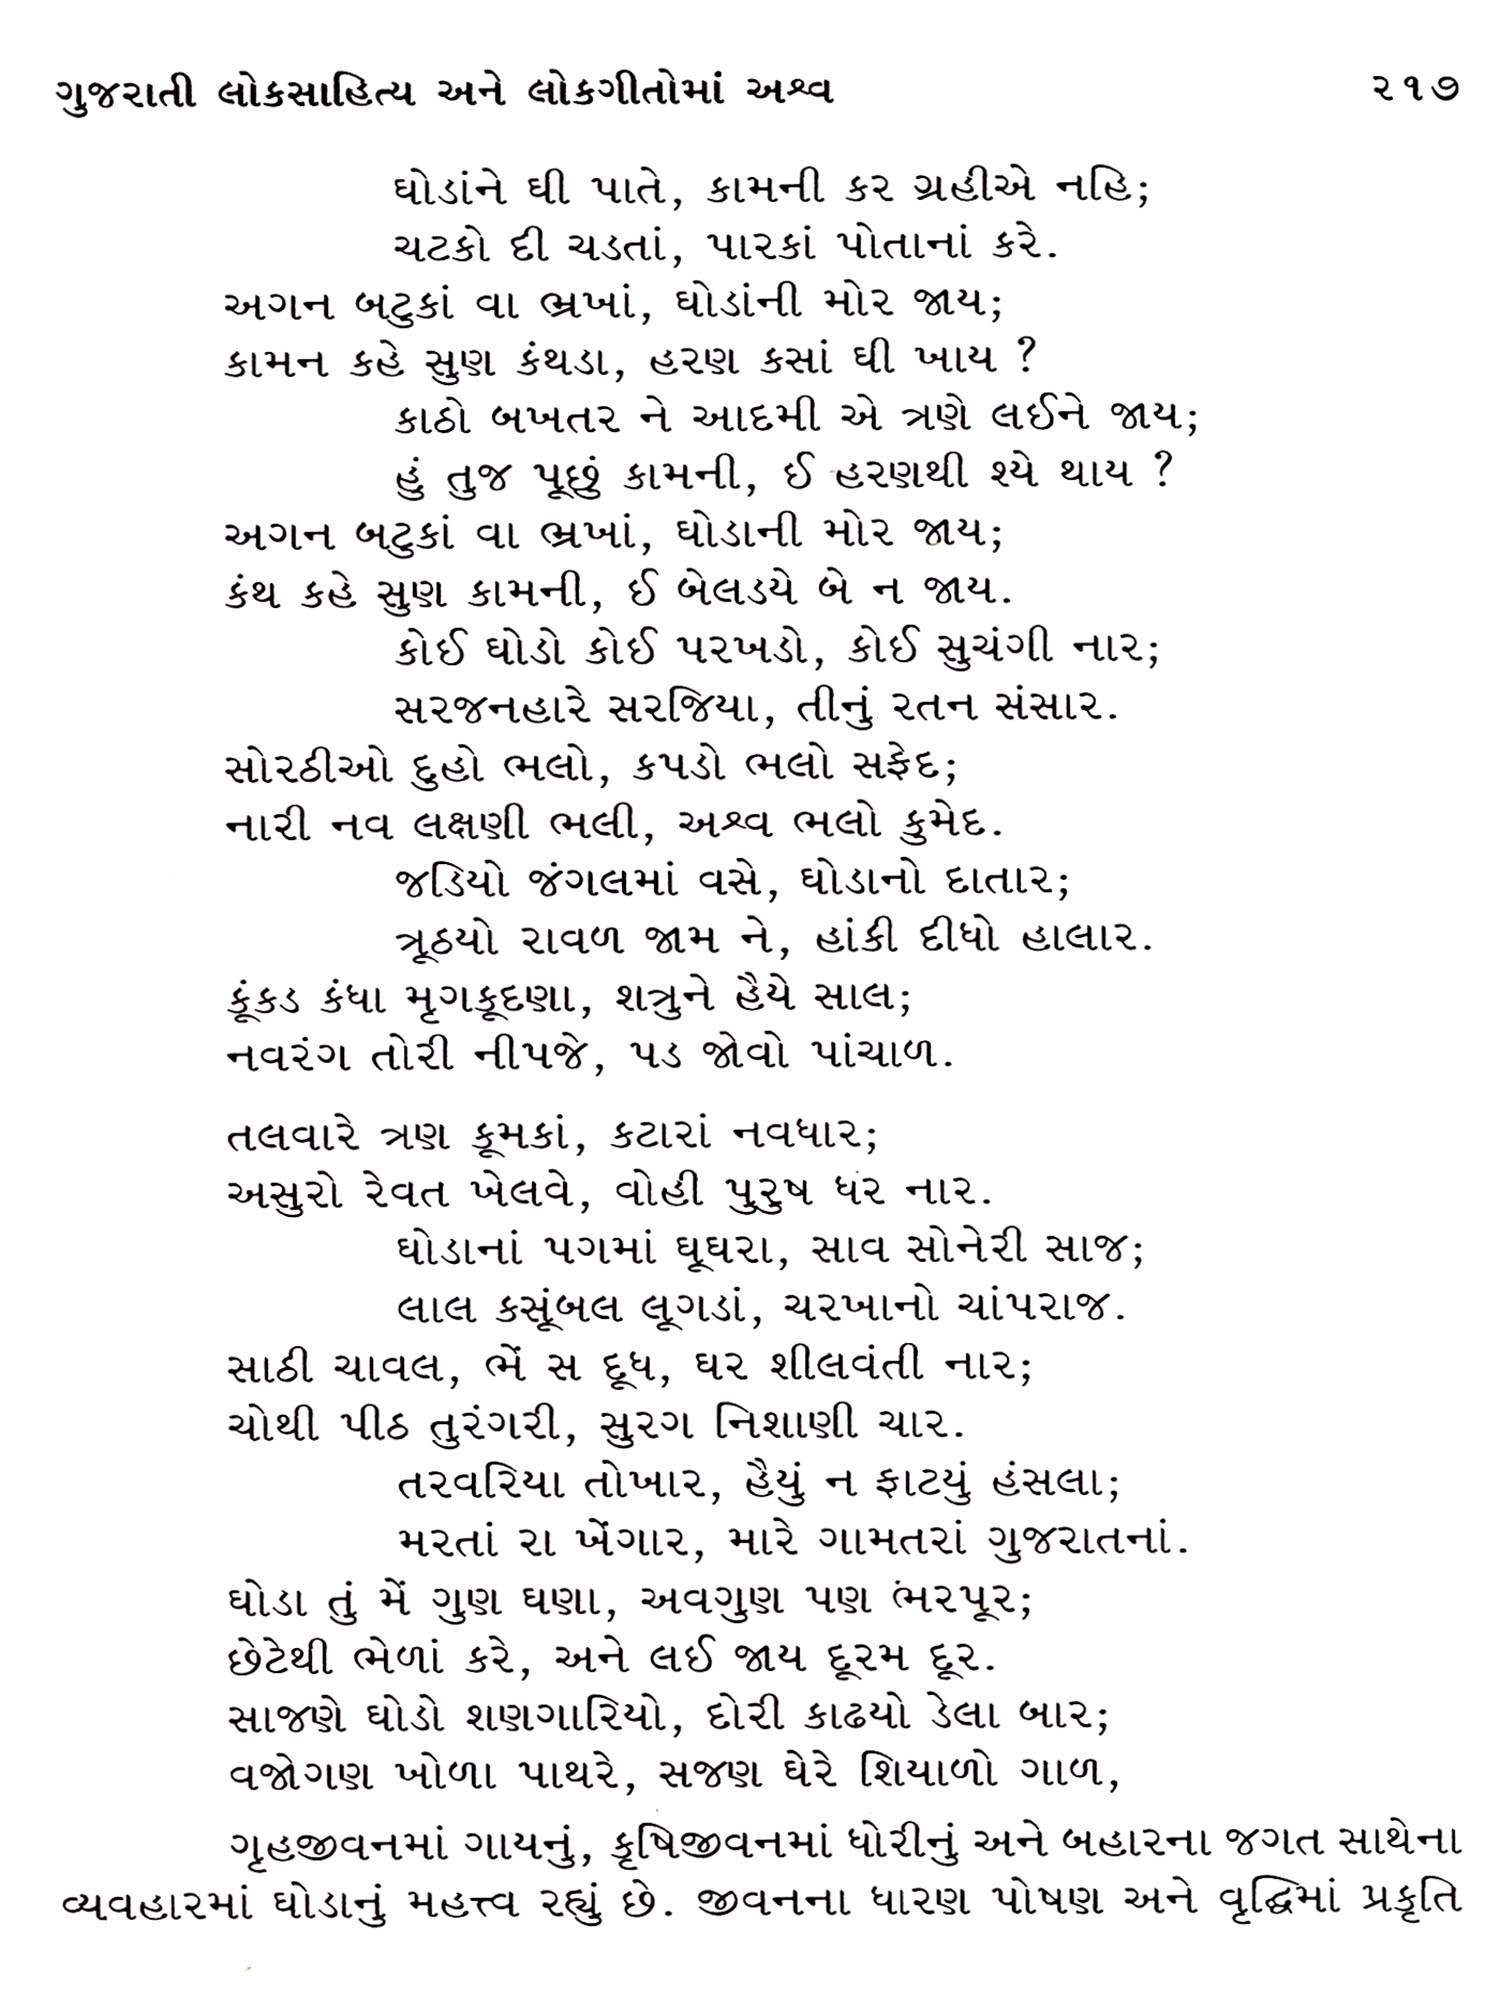 ગુજરાતી લોકસાહિત્ય અને લોકગીતોમાં અશ્વ ૨૧૭
ઘોડાંને ઘી પાતે, કામની કર ગ્રહીએ નહિ;
ચટકો દી ચડતાં, પારકાં પોતાનાં કરે.
અગન બટુકાં વા ભ્રખાં, ઘોડાંની મોર જાય;
કામન કહે સુણ કંથડા, હરણ કસાં ઘી ખાય ?
કાઠો બખતર ને આદમી એ ત્રણે લઈને જાય;
હું તુજ પૂછું કામની, ઈ હરણથી શ્યે થાય ?
અગન બટુકાં વા ભ્રખાં, ઘોડાની મોર જાય;
કંથ કહે સુણ કામની, ઈ બેલડયે બે ન જાય.
કોઈ ઘોડો કોઈ પરખડો, કોઈ સુચંગી નાર;
સરજનહારે સરજિયા, તીનું રતન સંસાર.
સોરઠીઓ દુહો ભલો, કપડો ભલો સફેદ;
નારી નવ લક્ષણી ભલી, અશ્વ ભલો કુમેદ.
જડિયો જંગલમાં વસે, ઘોડાનો દાતાર;
ત્રૂઠયો રાવળ જામ ને, હાંકી દીધો હાલાર.
કૂંકડ કંધા મૃગકૂદણા, શત્રુને હૈયે સાલ;
નવરંગ તોરી નીપજે, પડ જોવો પાંચાળ.
તલવારે ત્રણ કૂમકાં, કટારાં નવધાર;
અસુરો રેવત ખેલવે, વોહી પુરુષ ધર નાર.
ઘોડાનાં પગમાં ઘૂઘરા, સાવ સોનેરી સાજ;
લાલ કસૂંબલ લૂગડાં, ચરખાનો ચાંપરાજ.
સાઠી ચાવલ, ભેં સ દૂધ, ઘર શીલવંતી નાર;
ચોથી પીઠ તુરંગરી, સુરગ નિશાણી ચાર.
તરવરિયા તોખાર, હૈયું ન ફાટયું હંસલા;
મરતાં રા ખેંગાર, મારે ગામતરાં ગુજરાતનાં.
ઘોડા તું મેં ગુણ ઘણા, અવગુણ પણ ભરપૂર;
છેટેથી ભેળાં કરે, અને લઈ જાય દૂરમ દૂર.
સાજણે ઘોડો શણગારિયો, દોરી કાઢયો ડેલા બાર;
વજોગણ ખોળા પાથરે, સજણ ઘેરે શિયાળો ગાળ,
ગૃહજીવનમાં ગાયનું, કૃષિજીવનમાં ધોરીનું અને બહારના જગત સાથેના
વ્યવહારમાં ઘોડાનું મહત્ત્વ રહ્યું છે. જીવનના ધારણ પોષણ અને વૃદ્ધિમાં પ્રકૃતિ